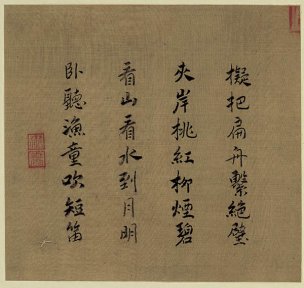 擬把扁舟繫絕壁
夾岸桃紅柳煙碧
看山看水到月明
臥聽漁童吹短笛